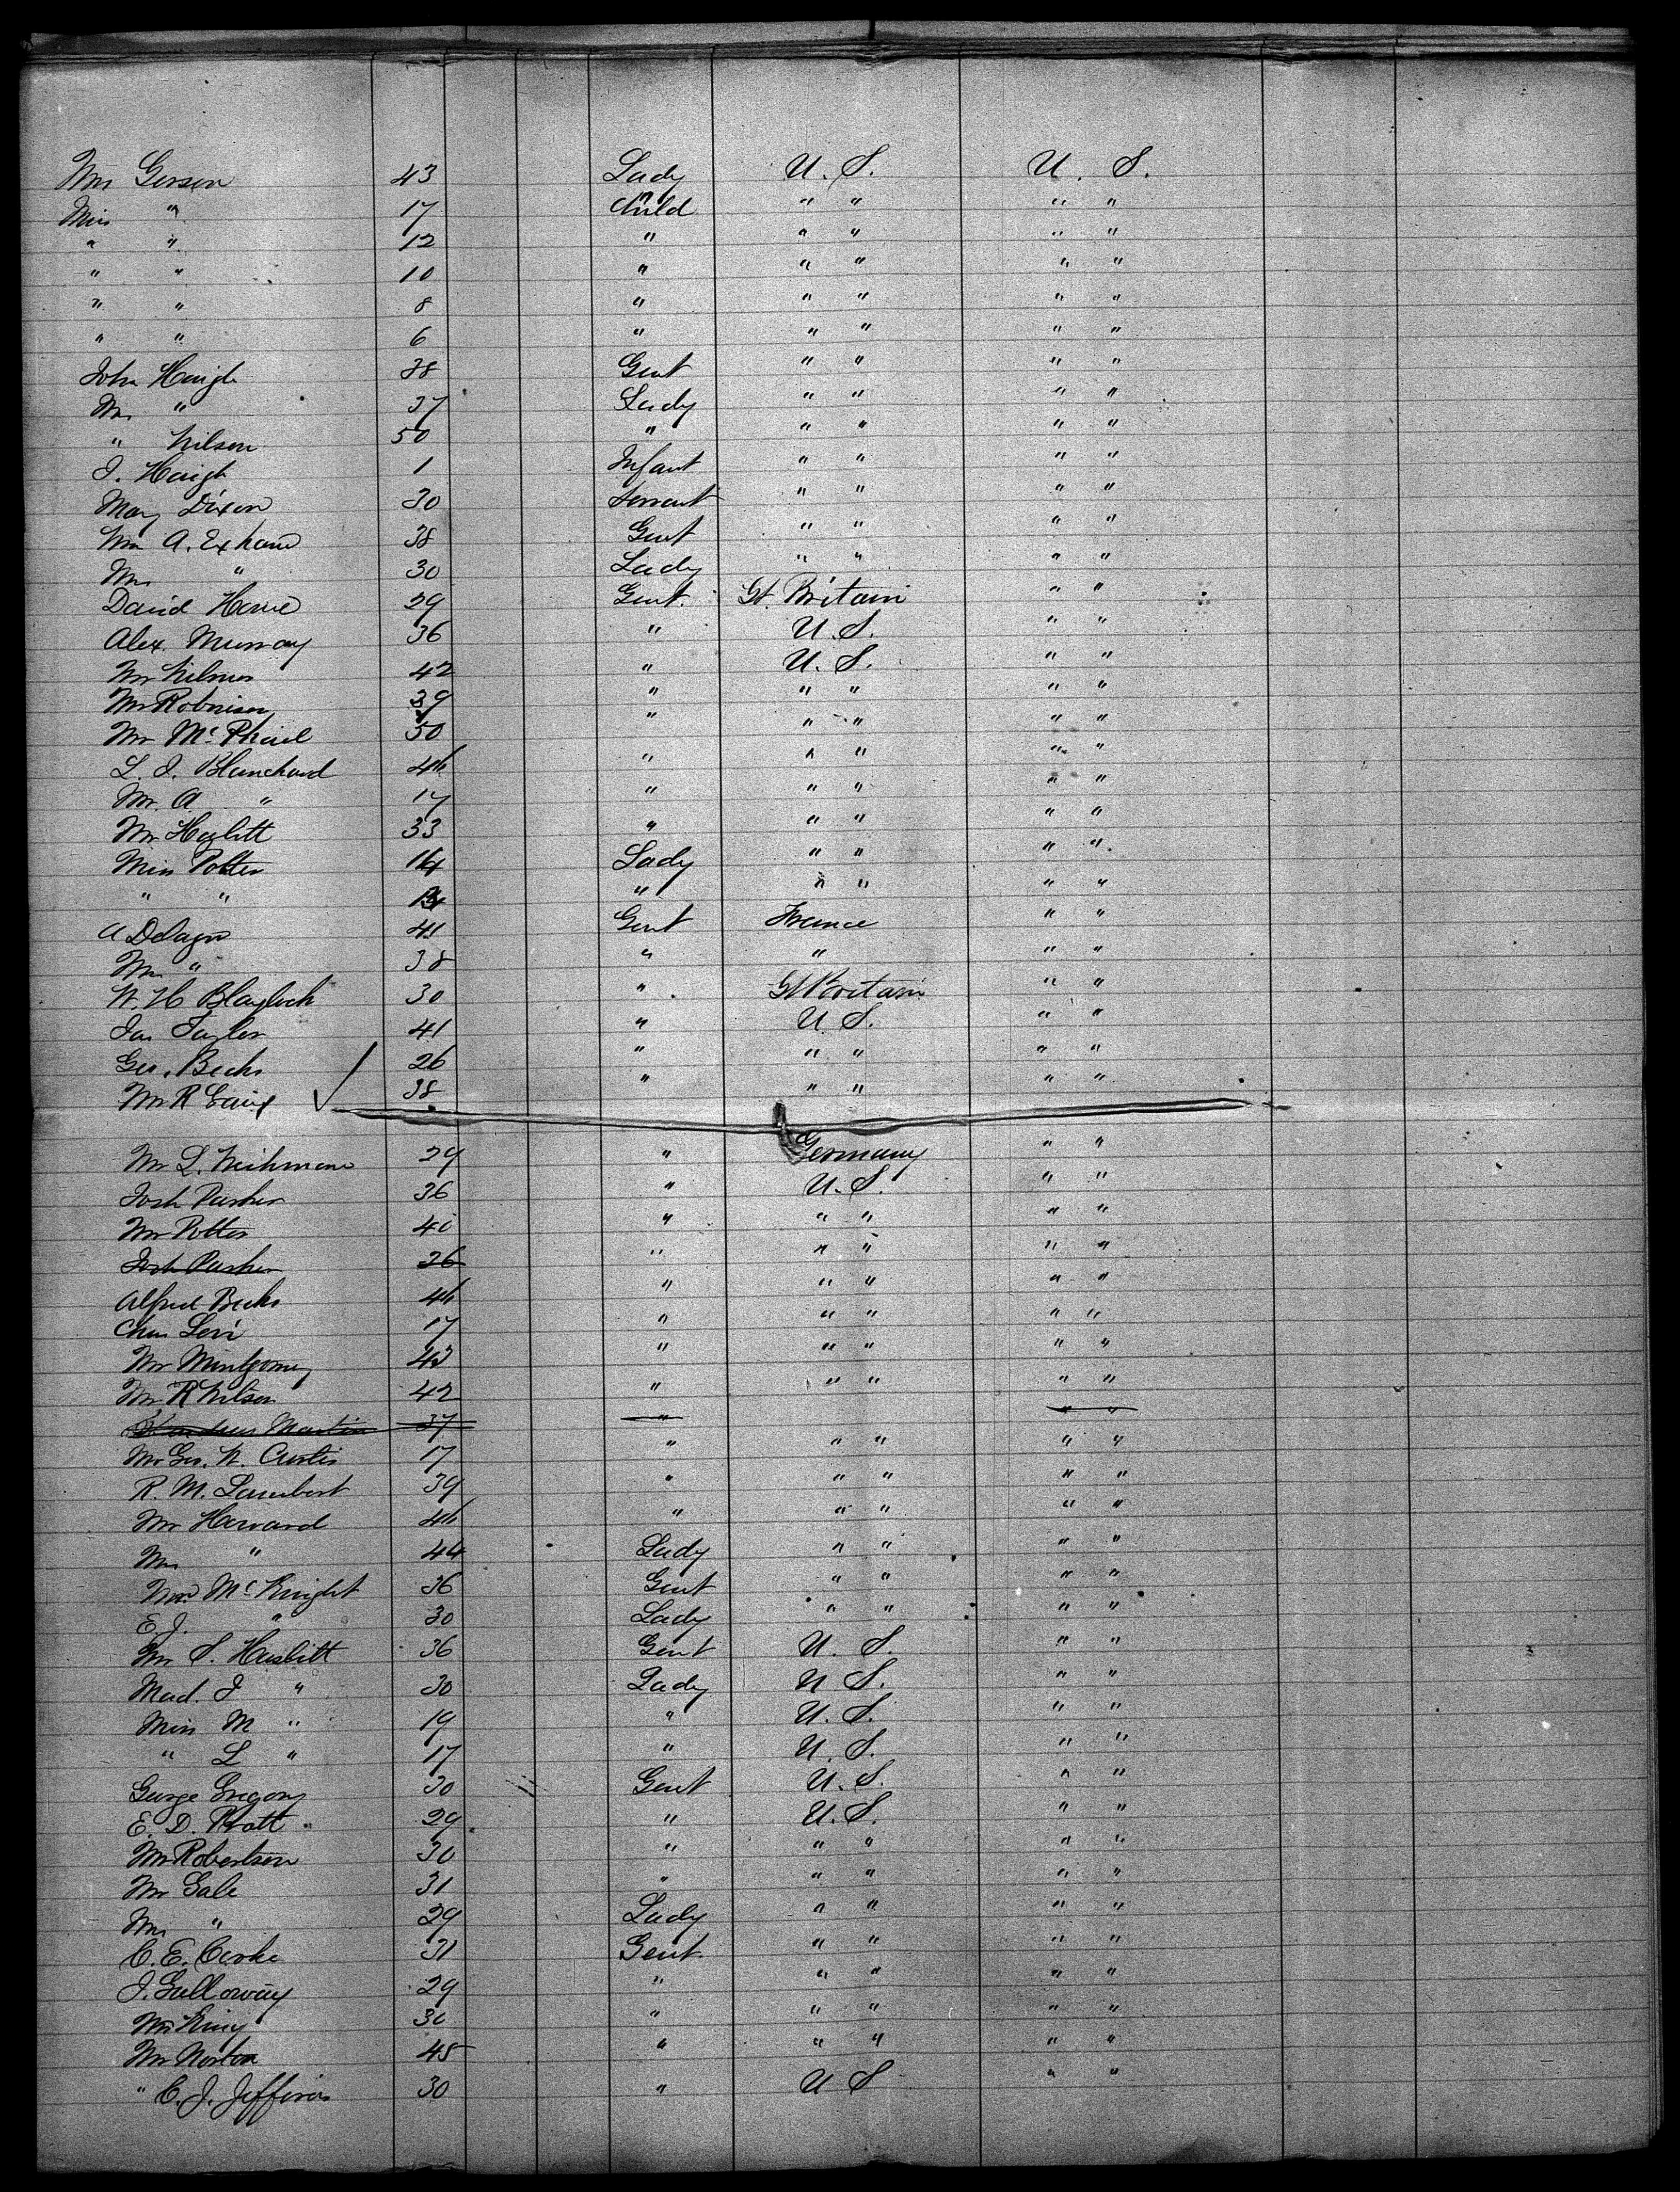 Mrs Gerson 43 Lady U. S. U. S.
Miss " 17 " Child " " " "
" " 12 " " " " "
" " 10 " " " " "
" " 8 " " " " "
" " 6 " " " " "
John Haigh 38 Gent " " " "
Mrs " 37 Lady " " " "
" Wilson 50 " " " " "
J. Haigh 1 Infant " " " "
Mary Dixon 30 Servant " " " "
Wm A. Exham 38 Gent " " " "
Mrs " 30 Lady " " " "
David Howe 29 Gent. Gt. Britain " "
Alex. Murray 36 " U. S. " "
Mr 42 " U. S. " "
Mr Robinson 39 " " " " "
Mr McPhail 50 " " " " "
L. J. Blanchard 46 " " " " "
Mr. A. " 17 " " " " "
Mr Hazlitt 33 " " " " "
Miss Potter 14 Lady " " " "
" " " " " " "
A 41 Gent France " "
Mr " 38 " " " "
W. H Blaylock 30 " Gt Britain " "
Jas Taylor 41 " U. S. " "
Geo. Becks 26 " " " " "
Mr R 38 " " " " "
Mr L. Weihmann 29 " Germany " "
Josh Parker 36 " U. S. " "
Mr Potter 40 " " " " "
Josh Parker 26 " " " " "
Alfred Becks 46 " " " " "
Chas Levi 17 " " " " "
Mr Montgomery 43 " " " " "
Mr R Wilson 42 " " " " "
Martin 37 " " "
Mr Geo. W. Curtis 17 " " " " "
R. M. Lambert 39 " " " " "
Mr Howard 46 " " " " "
Mrs " 44 Lady " " " "
McKnight 36 Gent " " " "
E. J. " 30 Lady " " " "
Mr S. Hasbitt 36 Gent U. S. " "
Mad. J " 30 Lady U S. " "
Miss M " 19 " U. S. " "
" L " 17 " U. S. " "
George Gregory 30 Gent U. S. " "
E. D. Pratt 29 " U. S. " "
Mr Robertson 30 " " " " "
Mr Gale 31 " " " " "
Mrs " 29 Lady " " " "
C. E. Cooke 31 Gent " " " "
J. Galloway 29 " " " " "
Mr King 30 " " " " "
Mr Norton 45 " " " " "
" C. J. Jefferis 30 " U S " "